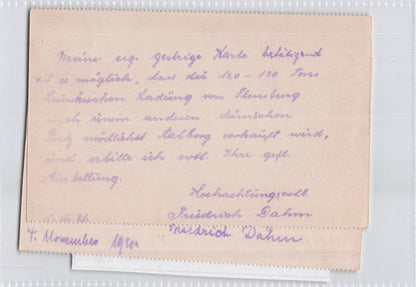 Meine erg. gestrige Karte bestätigend
ist es möglich, dass die 120-130 Tons
Ladung von Flensburg
nach einem anderen dänischen
Platz nördlichst Aalborg verkauft wird,
und erbitte ich evtl. Ihre gefl.
Anstellung.
Hochachtungsvoll
Friedrich Dahm
4. November
Friedrich Dahm